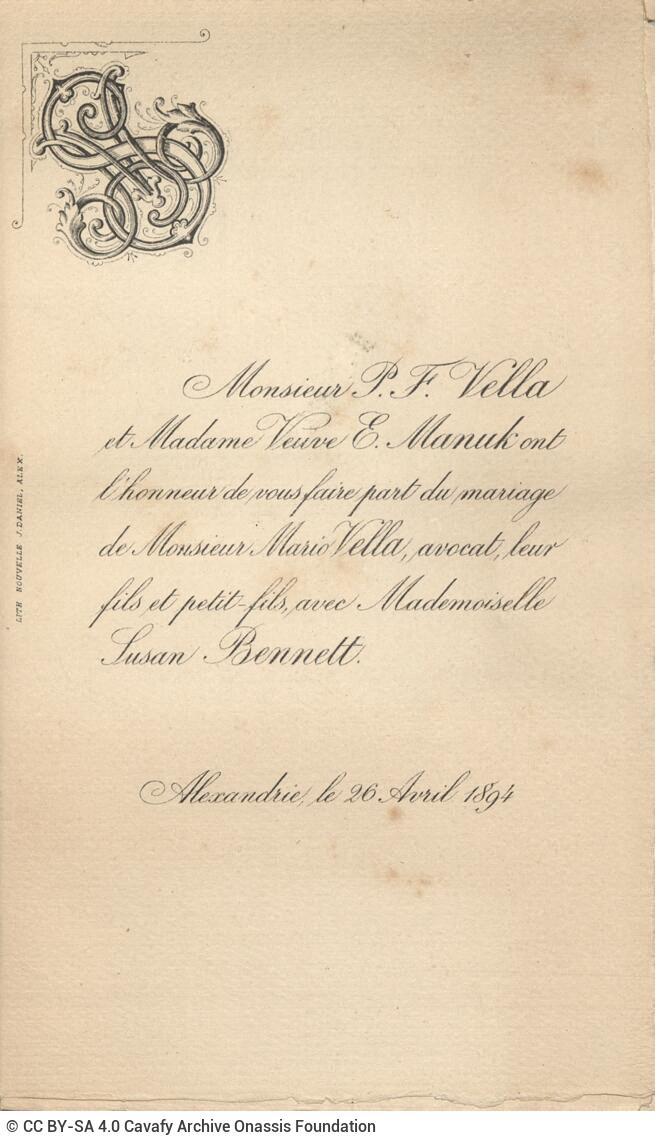 Monsieur P. F. Vella
et Madame Veuve E. Manuk ont
l'honneur de vous faire part du mariage
de Monsieur Mario Vella, avocat, leur
fils et petit-fils, avec Mademoiselle
Susan Bennett.
Alexandrie, le 26 Avril 1894
LITH NOUVELLE J. DANIEL, ALEX.
© CC BY-SA 4.0 Cavafy Archive Onassis Foundation